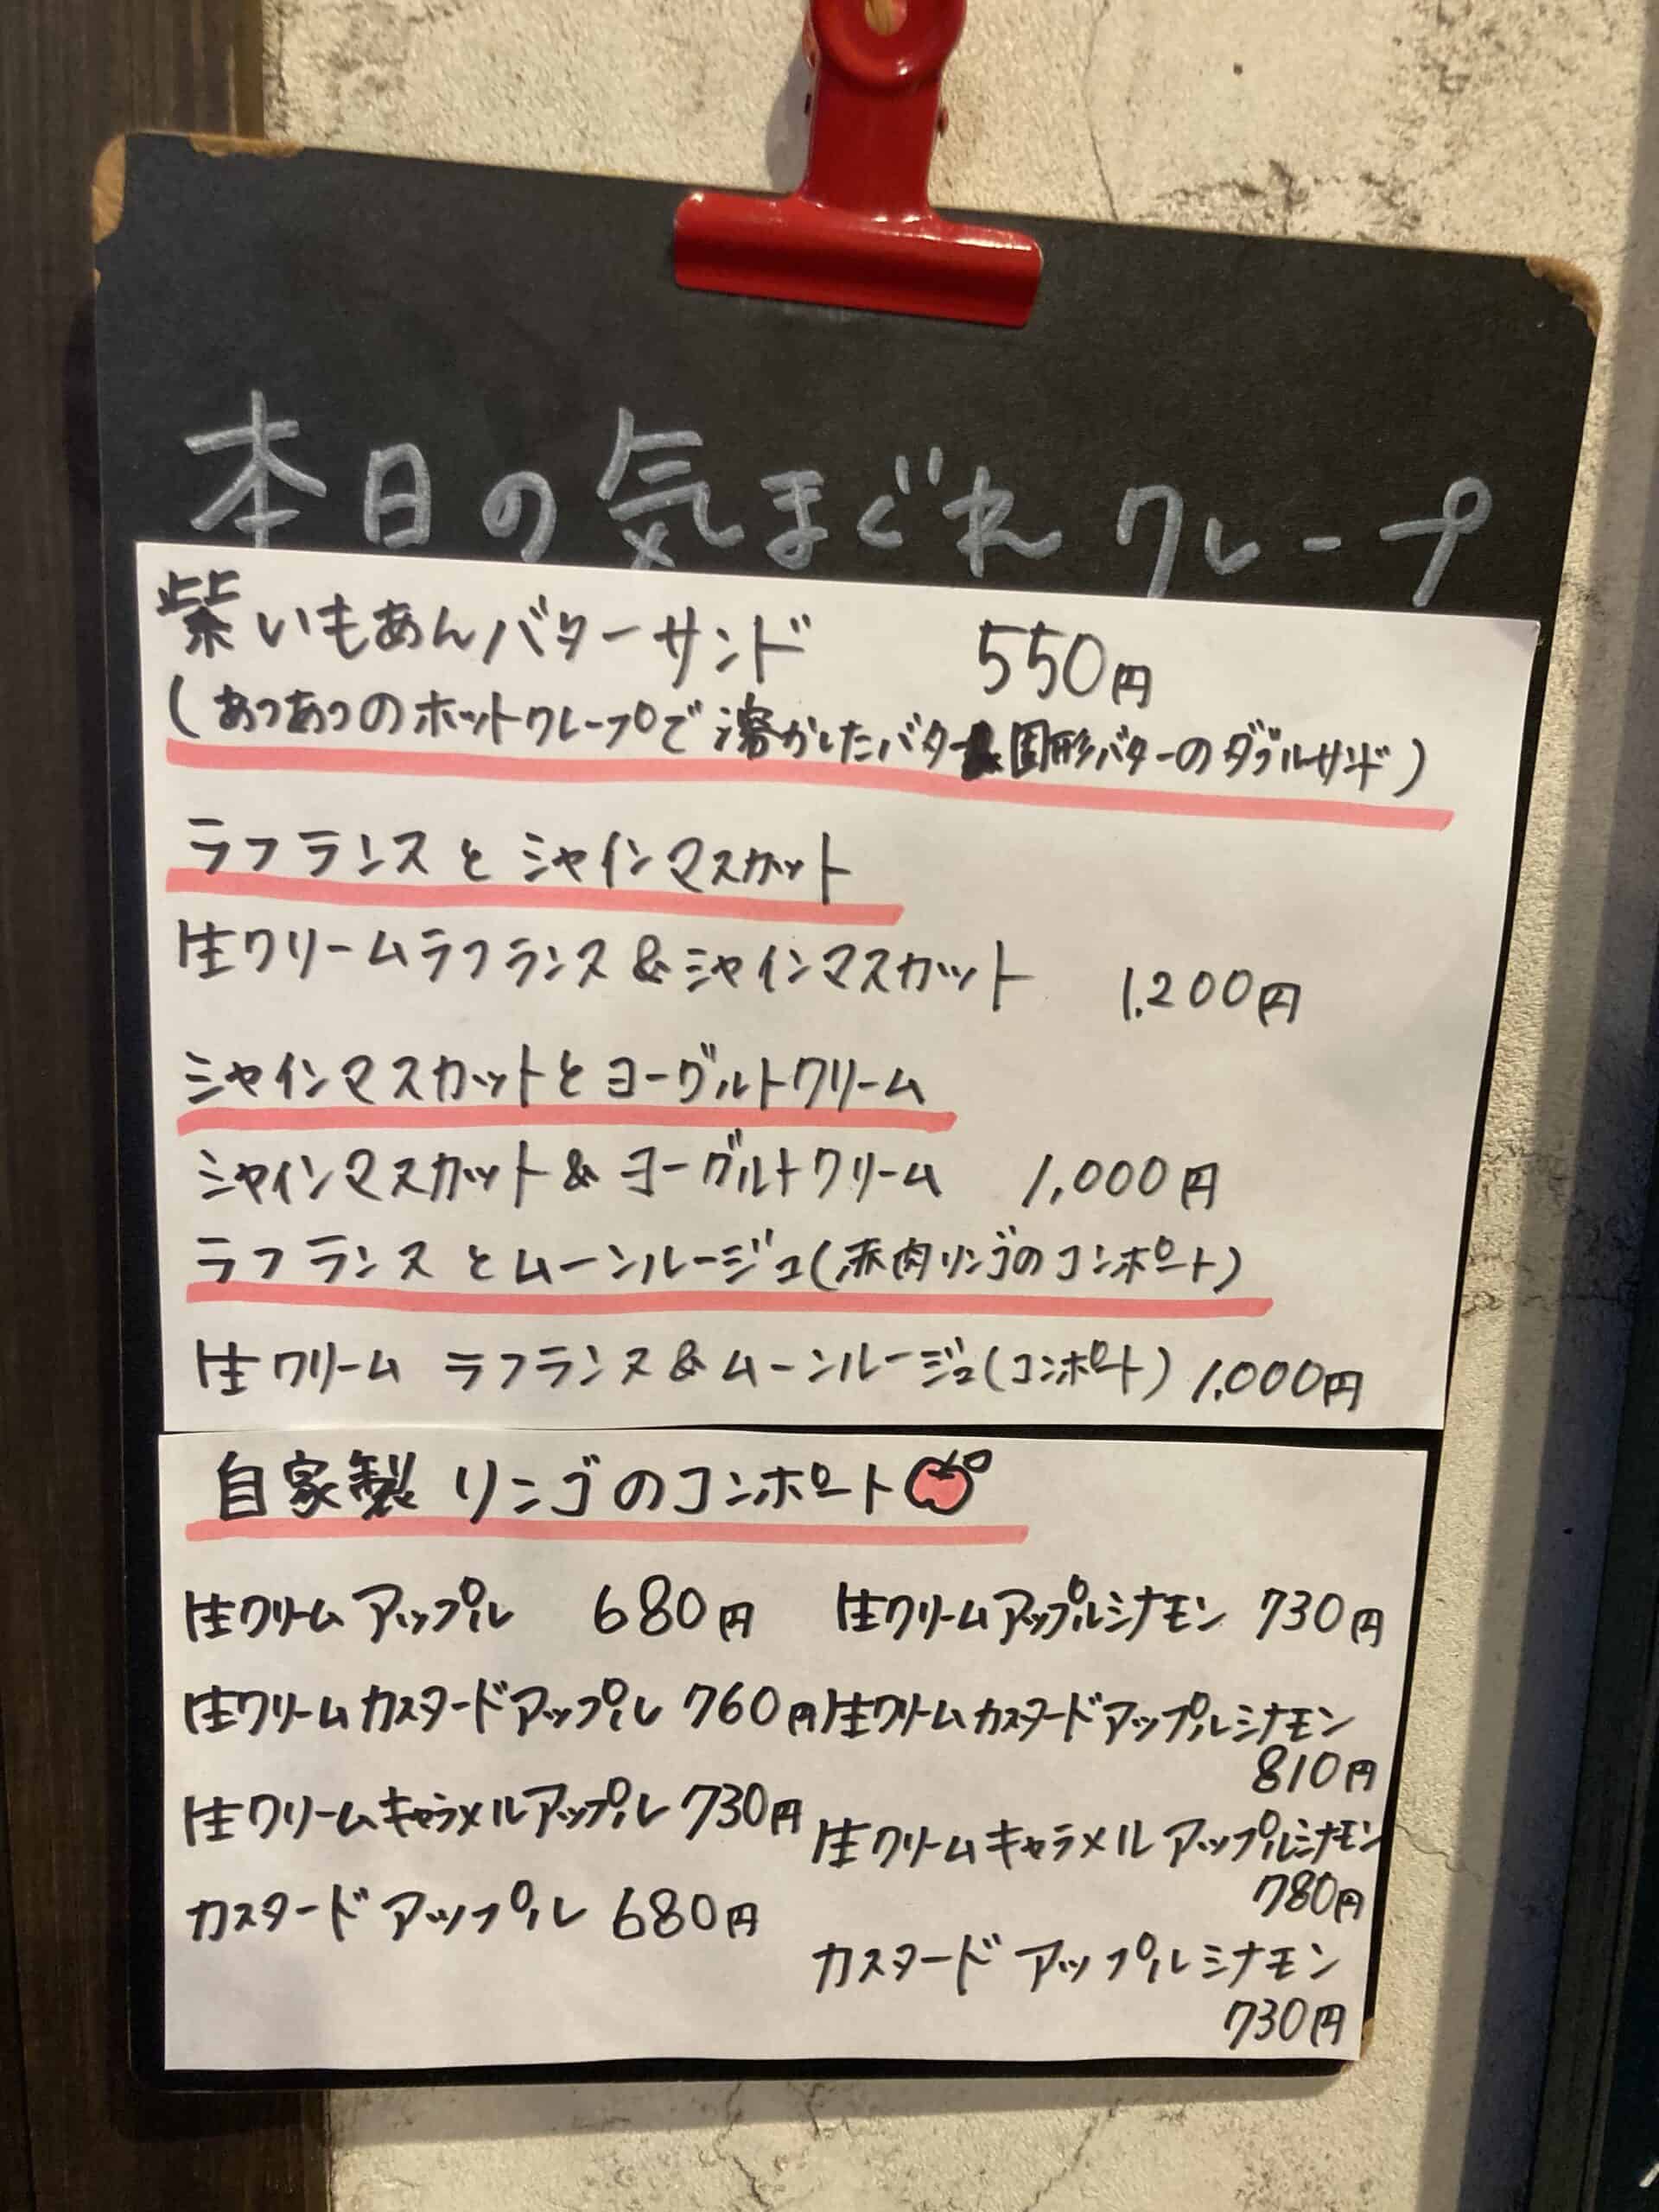 本日の気まぐれクレープ
紫いもあんバターサンド 550円
(あつあつのホットクレープで溶かしたバターと固形バターのダブルサンド)
ラフランスとシャインマスカット
生クリームラフランス&シャインマスカット 1,200円
シャインマスカットとヨーグルトクリーム
シャインマスカット&ヨーグルトクリーム 1,000円
ラフランスとムーンルージュ(赤肉リンゴのコンポート)
生クリーム ラフランス&ムーンルージュ(コンポート) 1,000円
自家製リンゴのコンポート
生クリームアップル 680円
生クリームカスタードアップル 760円
生クリームキャラメルアップル 730円
カスタードアップル 680円
生クリームアップルシナモン 730円
生クリームカスタードアップルシナモン
810円
生クリームキャラメルアップルシナモン
780円
カスタードアップルシナモン
730円